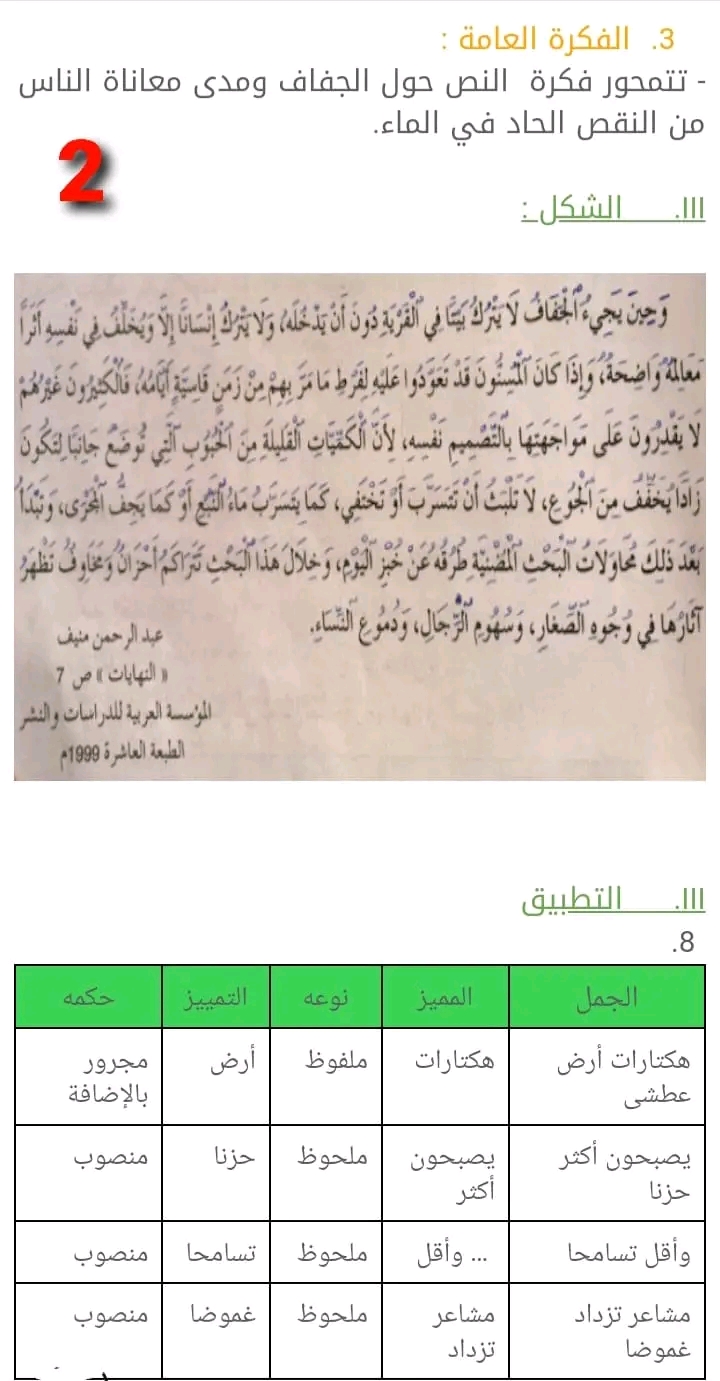 3. الفكرة العامة :
- تتمحور فكرة النص حول الجفاف ومدى معاناة الناس
من النقص الحاد في الماء.
2
III. الشكل :
وَحِينَ يَجِيءُ ٱلْجَفَافُ لَا يَتْرُكُ بَيْتًا فِي ٱلْقَرْيَةِ دُونَ أَنْ يَدْخُلَهُ، وَلَا يَتْرُكُ إِنْسَانًا إِلَّا وَيُخَلِّفُ فِي نَفْسِهِ أَثَرًا
مَعَالِمُهُ وَاضِحَةٌ، وَإِذَا كَانَ ٱلْمُسِنُّونَ قَدْ تَعَوَّدُوا عَلَيْهِ لِفَرْطِ مَا مَرَّ بِهِمْ مِنْ زَمَنٍ قَاسِيَةٍ أَيَّامُهُ، فَٱلْكَثِيرُونَ غَيْرُهُمْ
لَا يَقْدِرُونَ عَلَى مُوَاجَهَتِهَا بِٱلتَّصْمِيمِ نَفْسِهِ، لِأَنَّ ٱلْكَمِّيَّاتِ ٱلْقَلِيلَةَ مِنَ ٱلْحُبُوبِ ٱلَّتِي تُوضَعُ جَانِبًا لِتَكُونَ
زَادًا يُخَفِّفُ مِنَ ٱلْجُوعِ، لَا تَلْبَثُ أَنْ تَتَسَرَّبَ أَوْ تَخْتَفِيَ، كَمَا يَتَسَرَّبُ مَاءُ ٱلنَّبْعِ أَوْ كَمَا يَجِفُّ ٱلْمَجْرَى، وَتَبْدَأُ
بَعْدَ ذَلِكَ مُحَاوَلَاتُ ٱلْبَحْثِ ٱلْمُضْنِيَةِ طُرُقُهُ عَنْ خُبْزِ ٱلْيَوْمِ، وَخِلَالَ هَذَا ٱلْبَحْثِ تَتَرَاكَمُ أَحْزَانٌ وَمَخَاوِفُ تَظْهَرُ
آثَارُهَا فِي وُجُوهِ ٱلصِّغَارِ، وَسُهُومِ ٱلرِّجَالِ، وَدُمُوعِ ٱلنِّسَاءِ.
عبد الرحمن منيف
« النهايات » ص 7
المؤسسة العربية للدراسات والنشر
الطبعة العاشرة 1999م
III. التطبيق
8.
الجمل المميز نوعه التمييز حكمه
هكتارات أرض هكتارات ملفوظ أرض مجرور
عطشى بالإضافة
يصبحون أكثر يصبحون ملحوظ حزنا منصوب
حزنا أكثر
وأقل تسامحا ... وأقل ملحوظ تسامحا منصوب
مشاعر تزداد مشاعر ملحوظ غموضا منصوب
غموضا تزداد